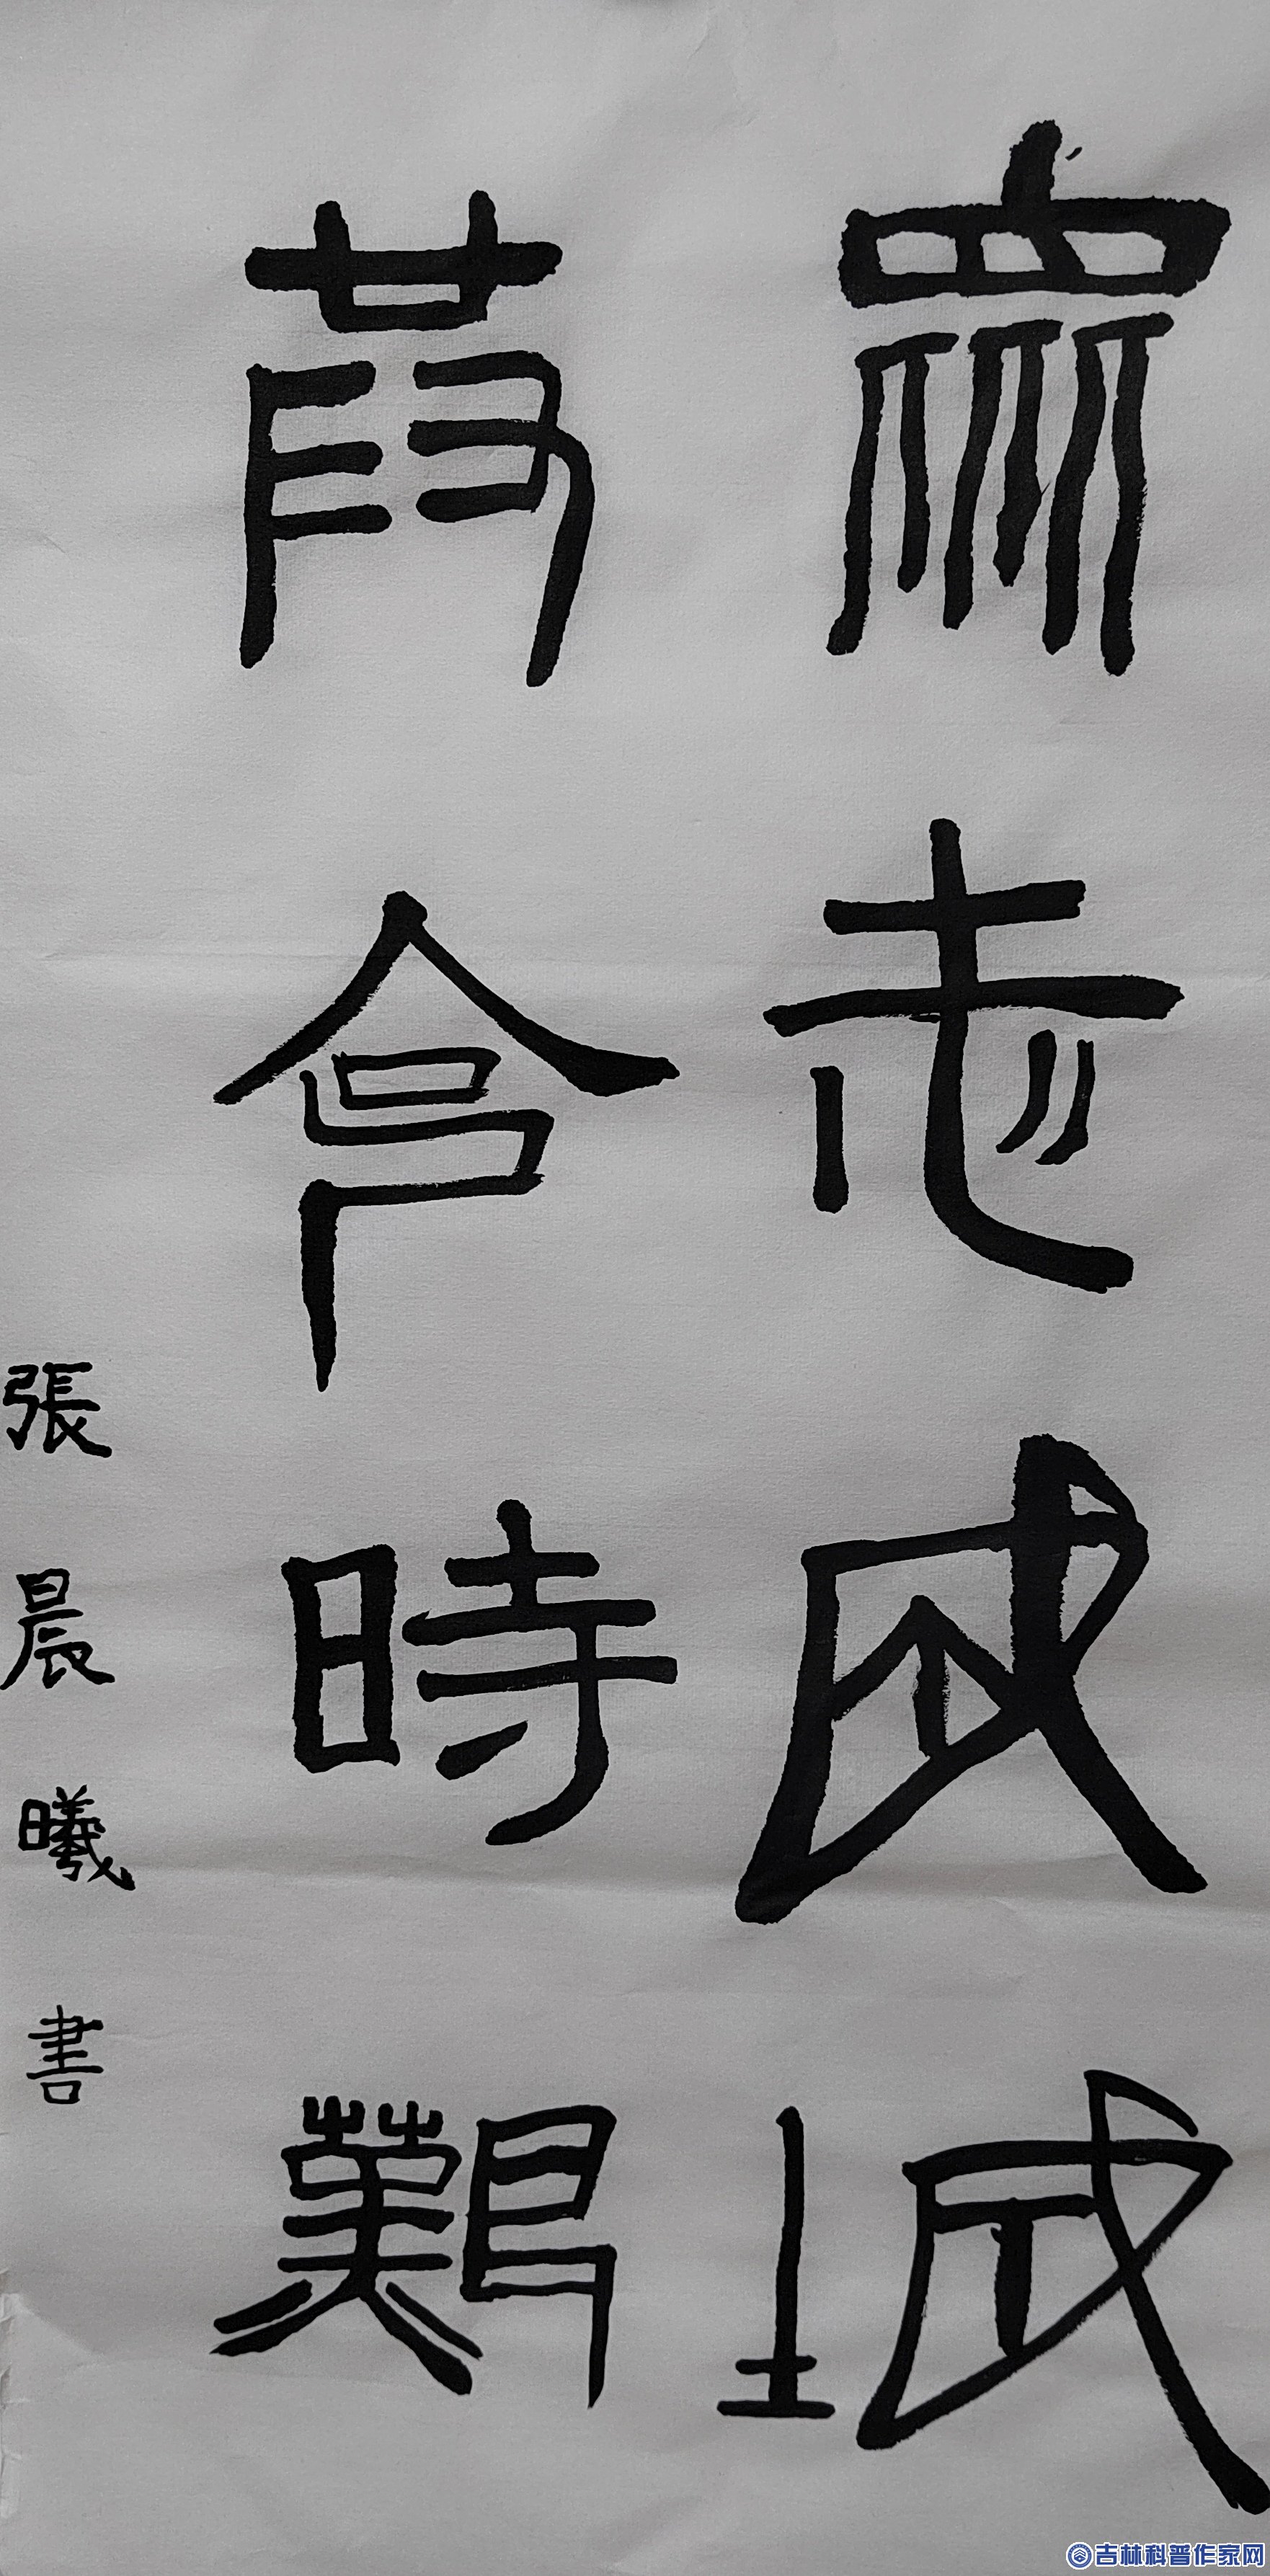 眾志成城
共克時艱
張晨曦書
吉林科普作家网